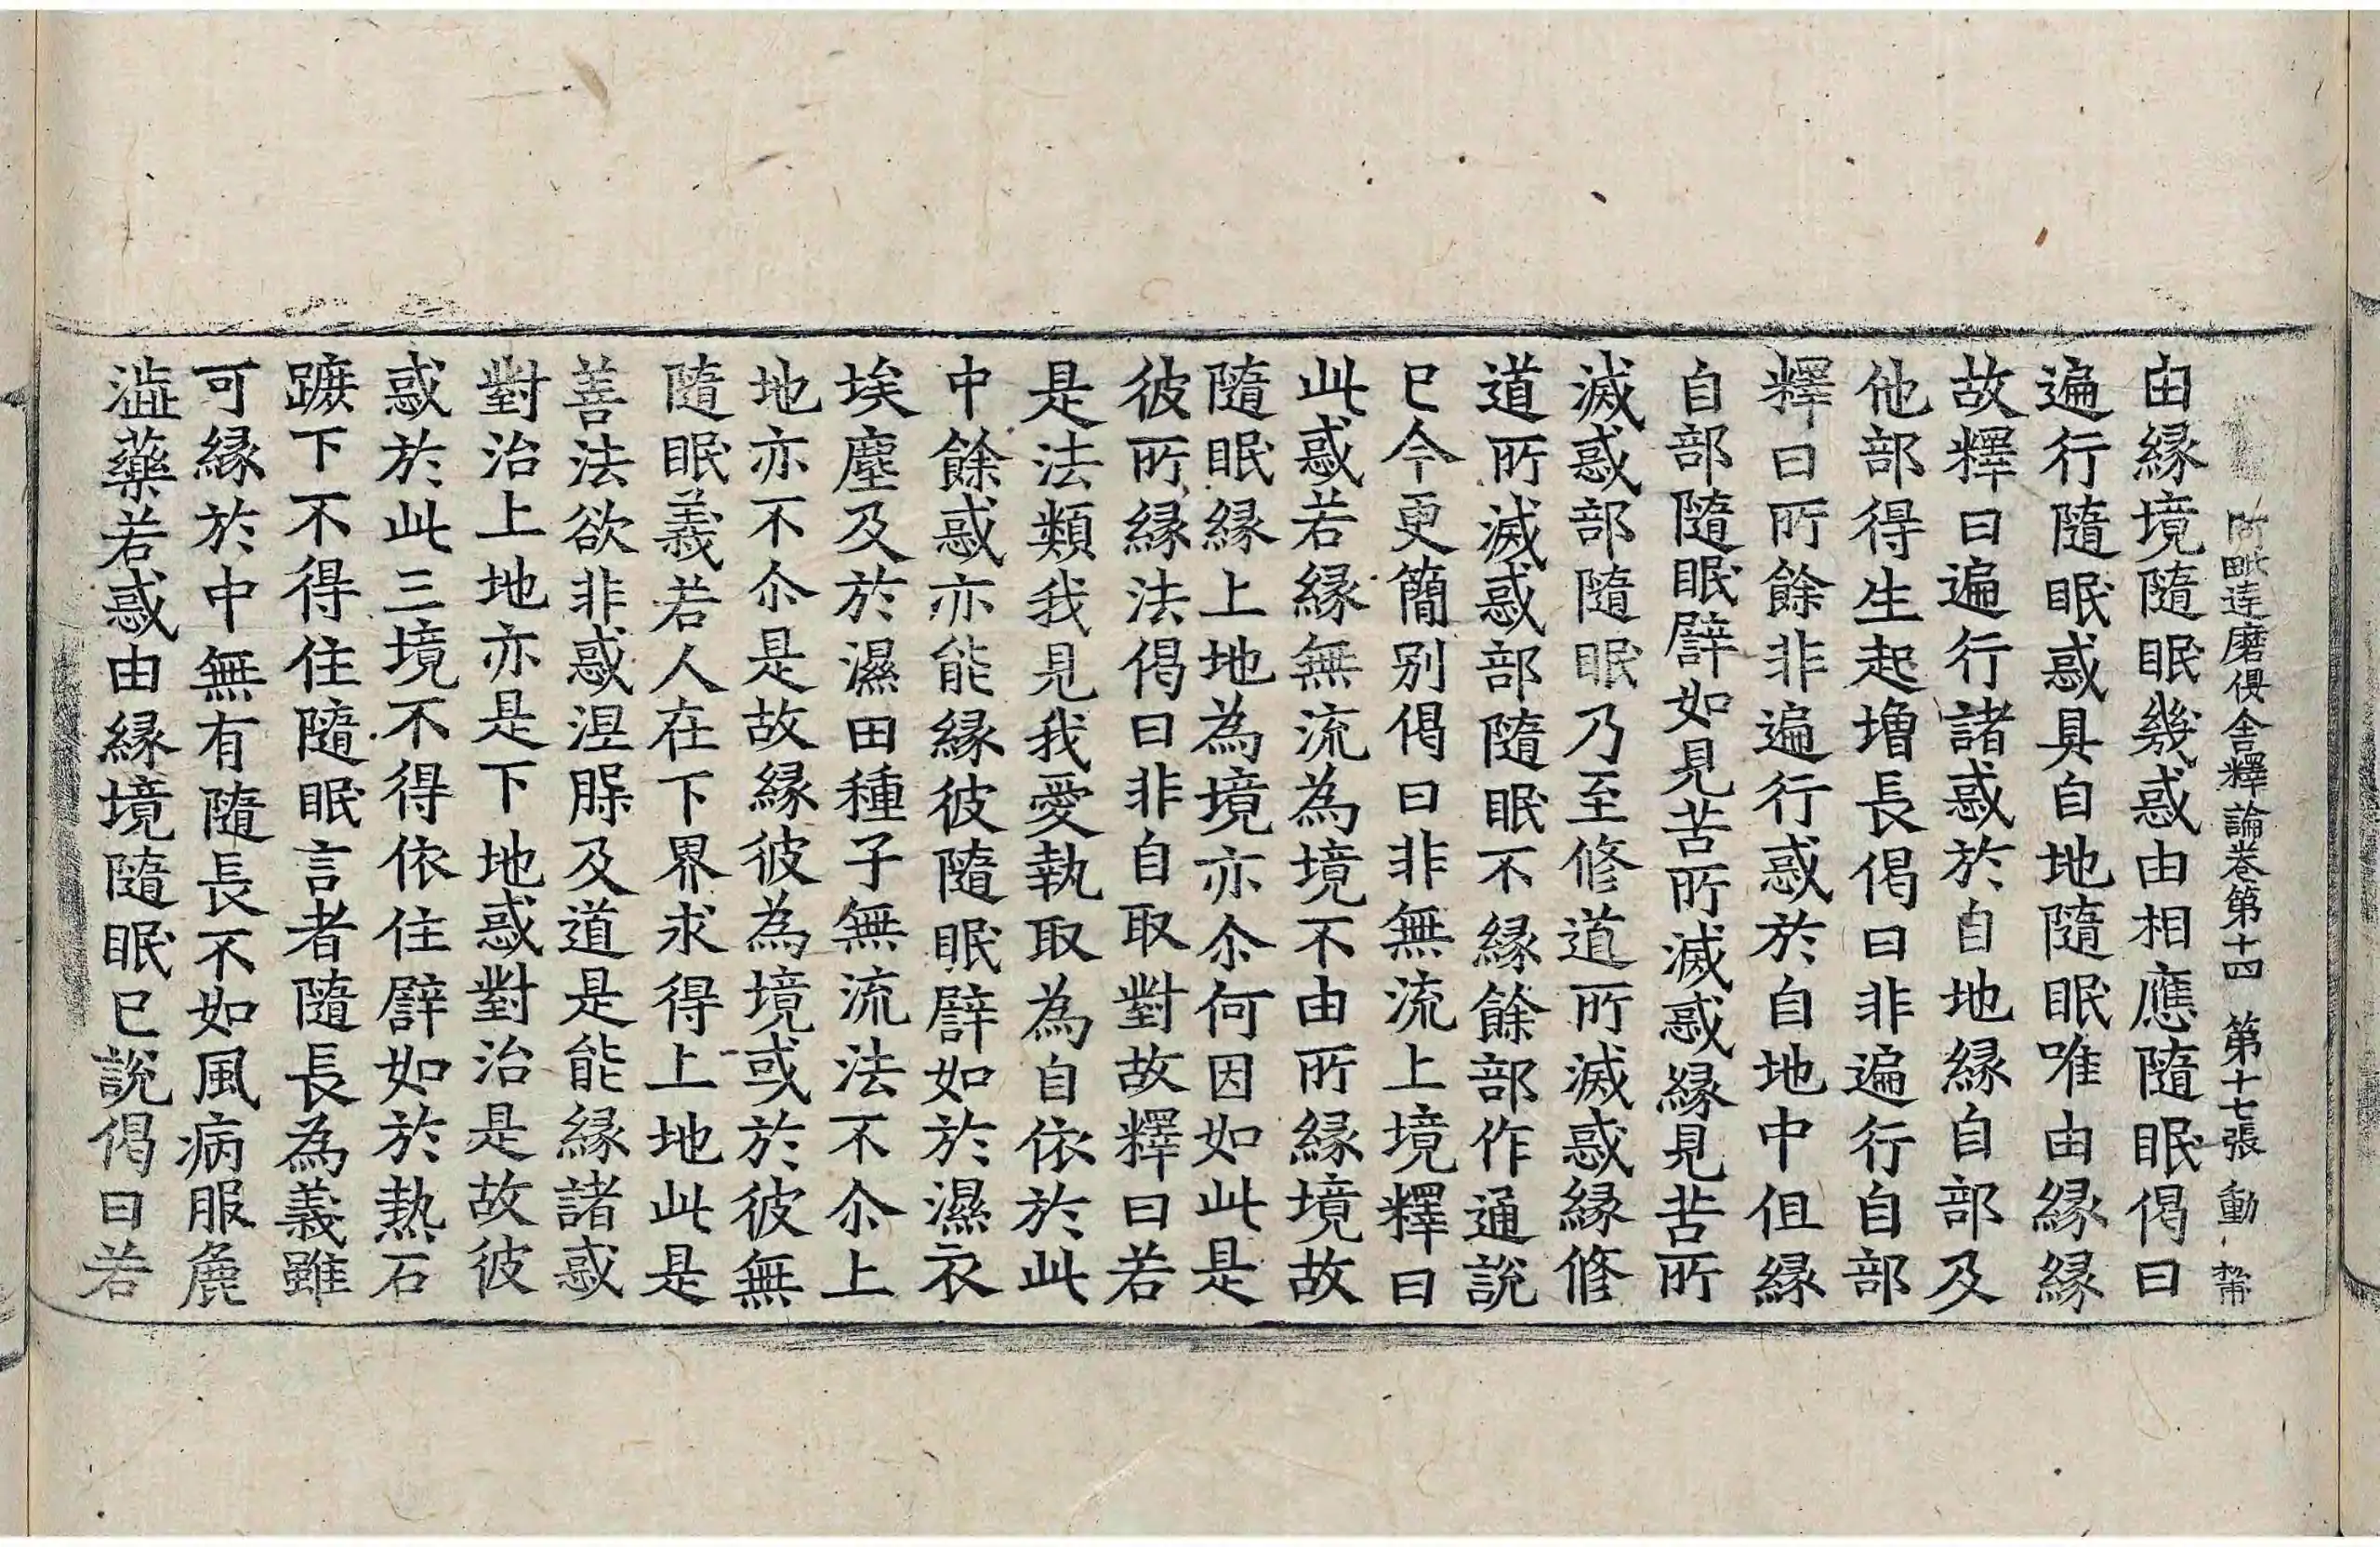 阿毗達磨俱舍釋論卷第十四 第十七張 動
由縁境隨眠幾惑由相應隨眠偈曰
遍行隨眠惑具自地隨眠唯由縁縁
故釋曰遍行諸惑於自地縁自部及
他部得生起增長偈曰非遍行自部
釋曰所餘非遍行惑於自地中但縁
自部隨眠譬如見苦所滅惑縁見苦所
滅惑部隨眠乃至修道所滅惑縁修
道所滅惑部隨眠不縁餘部作通說
已今更簡別偈曰非無流上境釋曰
此惑若縁無流為境不由所縁境故
隨眠縁上地為境亦尒何因如此是
彼所縁法偈曰非自取對故釋曰若
是法類我見我愛執取為自依於此
中餘惑亦能縁彼隨眠譬如於濕衣
埃塵及於濕田種子無流法不尒上
地亦不尒是故縁彼為境或於彼無
隨眠義若人在下界求得上地此是
善法欲非惑涅槃及道是能縁諸惑
對治上地亦是下地惑對治是故彼
惑於此三境不得依住譬如於熱石
蹠下不得住隨眠言者隨長為義雖
可縁於中無有隨長不如風病服麁
澁藥若惑由縁境隨眠已說偈曰若